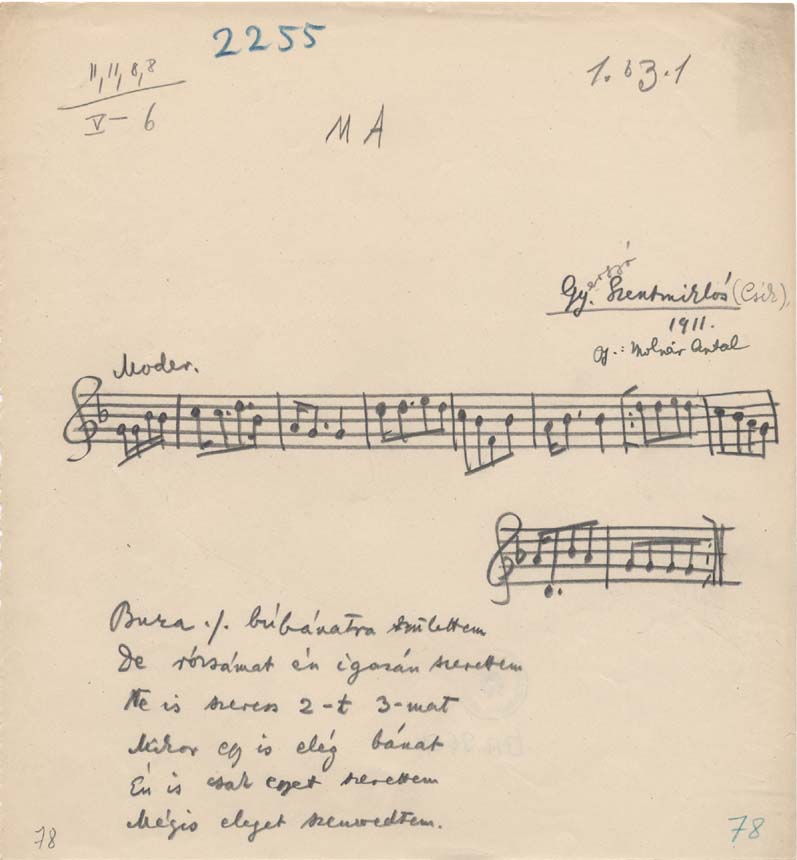 2255
11, 11, 8, 8
V - 6
1. b3. 1
M A
Gyergyó Szentmiklós (Csík),
1911.
Gy.: Molnár Antal
Moder.
Bura ./. búbánatra születtem
De rózsámat én igazán szerettem
Ne is szeress 2-t 3-mat
Mikor egy is elég bánat
Én is csak egyet szerettem
Mégis eleget szenvedtem.
78
78